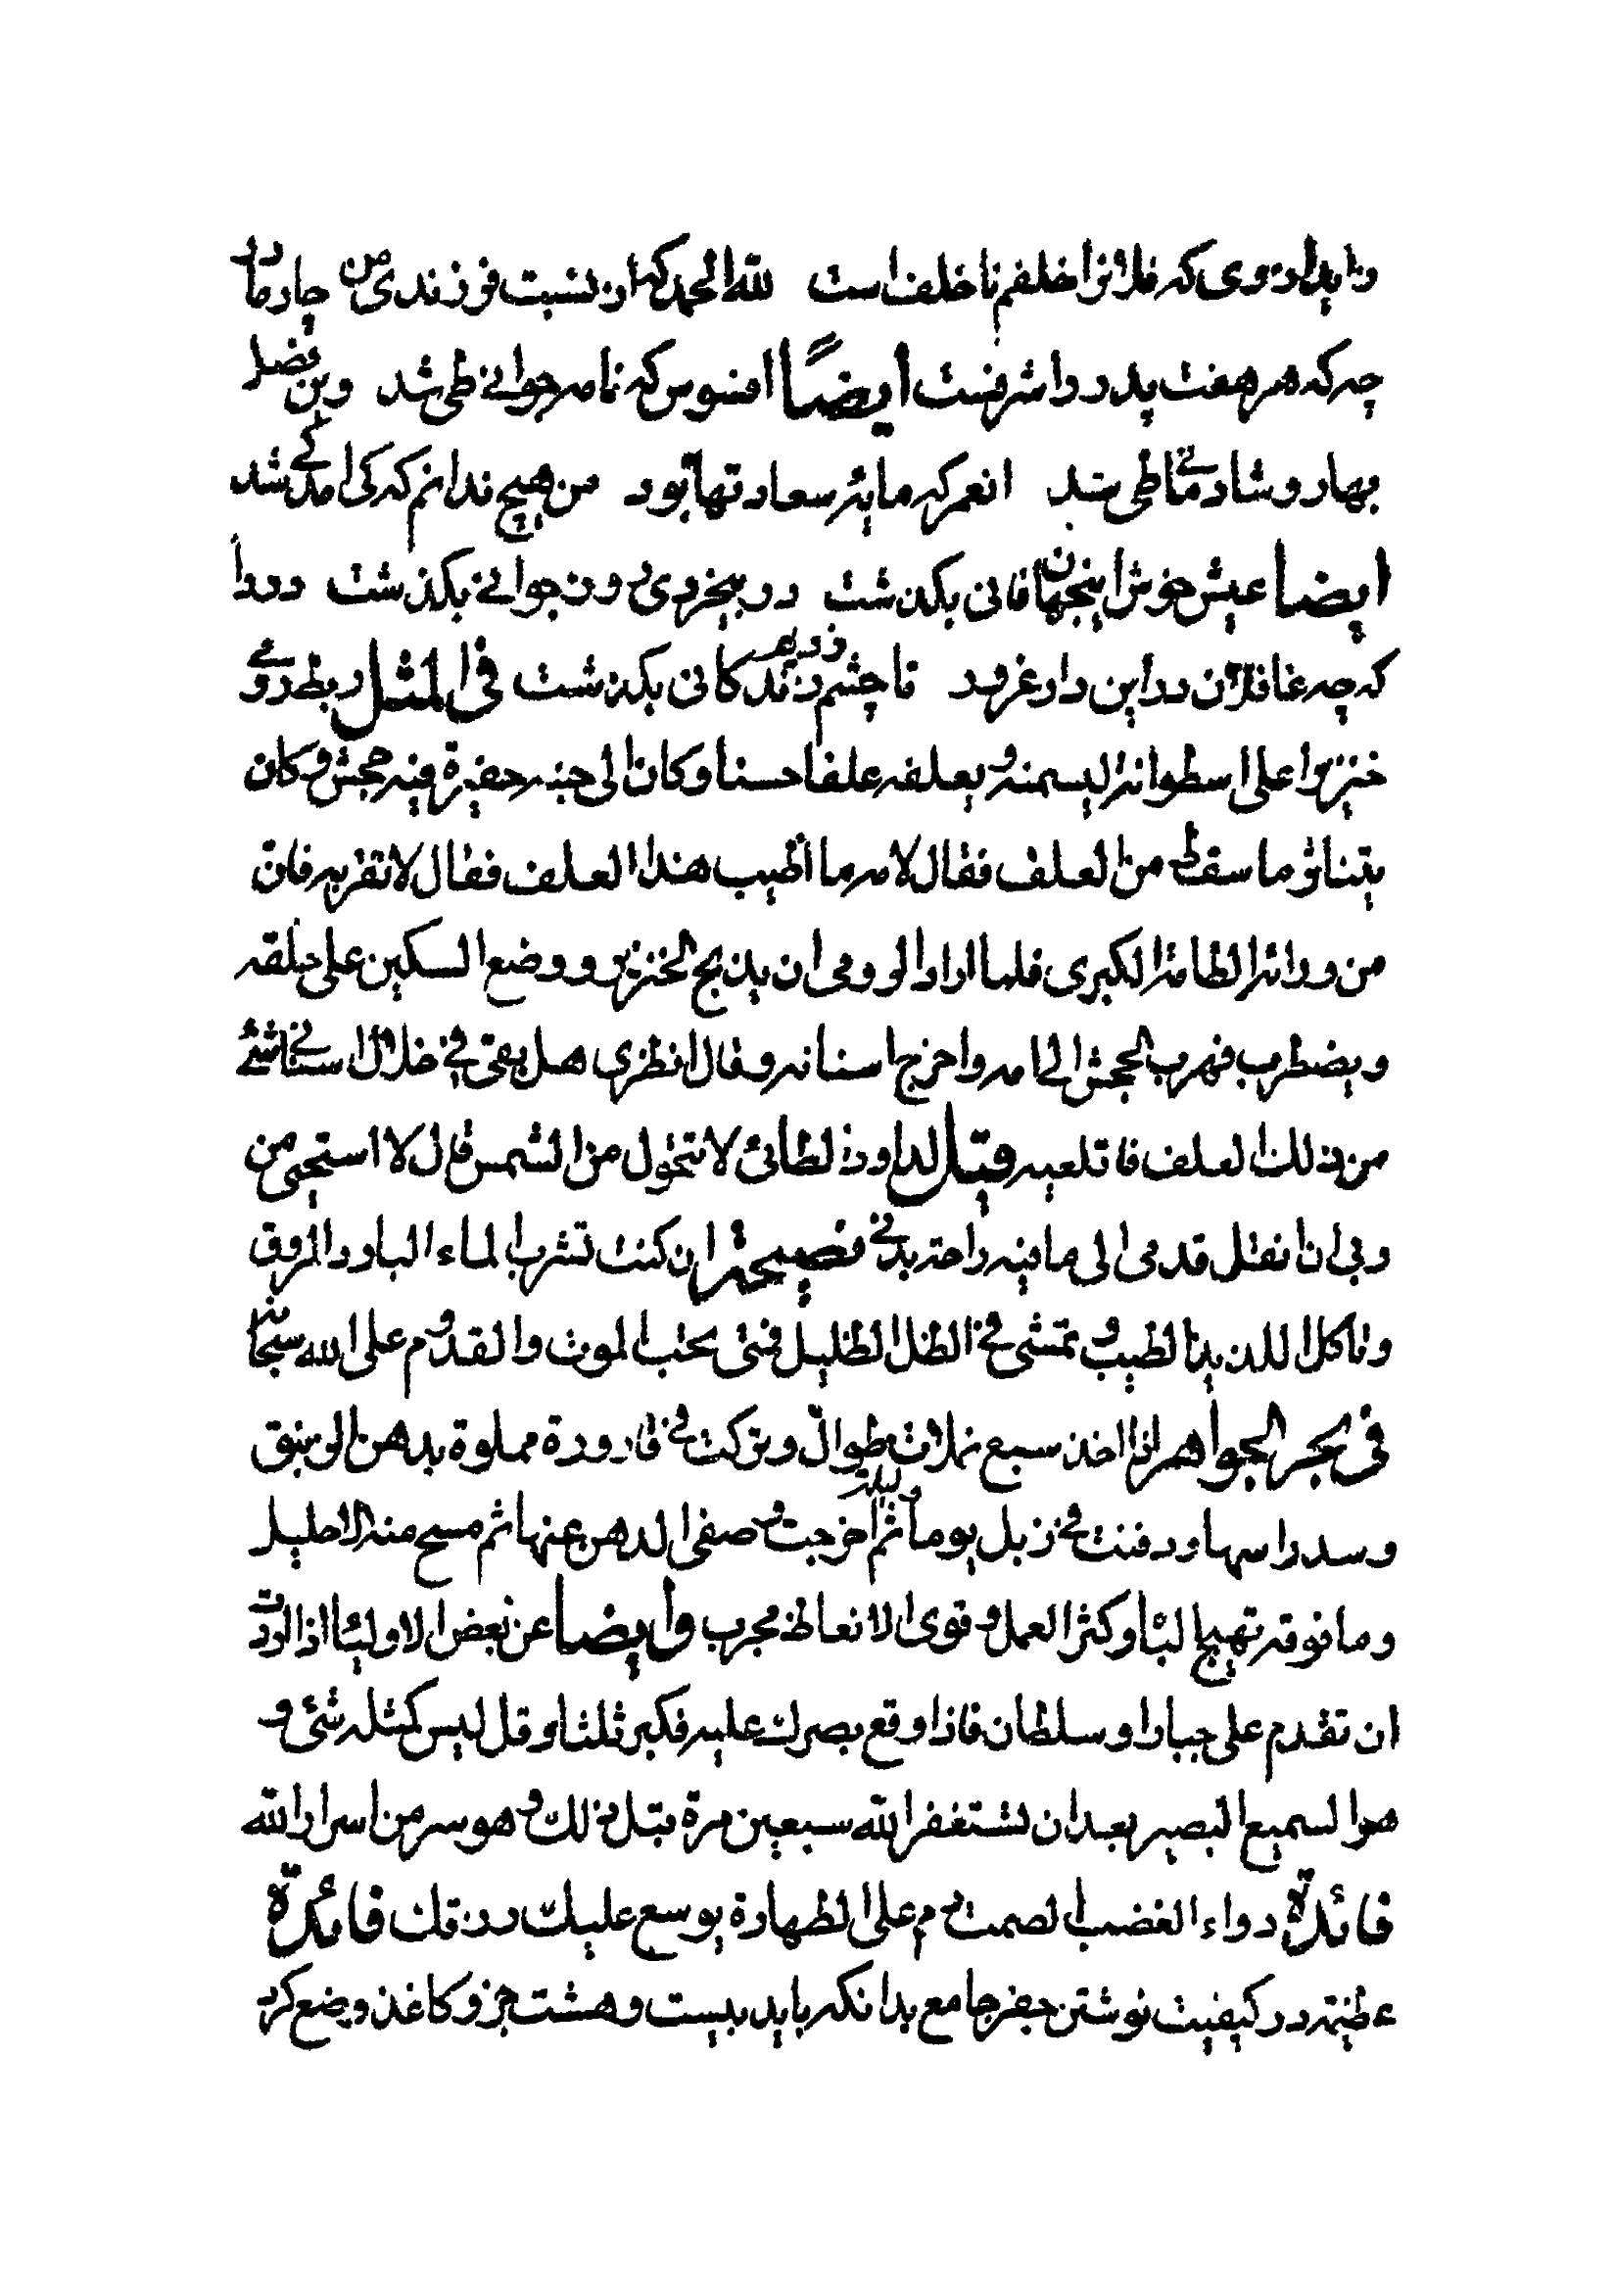 که فلانرا خلفم ناخلف است لله الحمد که از نسبت فرزندی من چار مادر
چه که هر هفت پدر را شرفست ایضًا افسوس که نامه جوانی طی شد وین فصل
بهار و شادمانی طی شد انعمر که مایه سعادتها بود من هیچ ندانم که کی امد کی شد
ایضا عیش خوش اینجهان فانی بگذشت در بیخردی و در جوانی بگذشت دردا
که چه غافلان در این دار غرور تا چشم زدیم زندگانی بگذشت فی المثل ربط رومی
خنزیرا علی اسطوانه لیسمنه و یعلفه علفا حسنا و کان الی جنبه حفیرة فیه جحش و کان
یتناول ما سقط من العلف فقال لامه ما اطیب هذا العلف فقال لا تقربه فان
من ورائه الطامة الکبری فلما اراد الرومی ان یذبح الخنزیر و وضع السکین علی حلقه
و یضطرب فهرب الجحش الی امه و اخرج اسنانه و قال انظری هل بقی فی خلال اسنانی شئ
من ذلک العلف فاقلعیه قیل لداود الطائی لا تتحول من الشمس قال لا استحیی من
ربی ان انقل قدمی الی ما فیه راحة بدنی نصیحة ان کنت تشرب الماء البارد المروق
و تاکل اللذیذ الطیب و تمشی فی الظل الظلیل فمتی تحب الموت و القدوم علی الله سبحانه
فی بحر الجواهر اذا اخذ سبع نملات طوال و ترکت فی قارورة مملوة بدهن الزیبق
و سد راسها و دفنت فی زبل یوما و لیلة ثم اخرجت و صفی الدهن عنها ثم مسح منه الاحلیل
و ما فوقه تهیج الباه و کثر العمل و قوی الانعاظ مجرب وایضا عن بعض الاولیاء اذا اردت
ان تقدم علی جبار او سلطان فاذا وقع بصرک علیه فکبر ثلثا و قل لیس کمثله شئ و
هو السمیع البصیر بعد ان تستغفر الله سبعین مرة قبل ذلک و هو سر من اسرار الله
فائدة دواء الغضب الصمت دم علی الطهارة یوسع علیک رزقک فائدة
عظیمة در کیفیت نوشتن جفر جامع بدانکه باید بیست و هشت جزو کاغذ وضع کرد